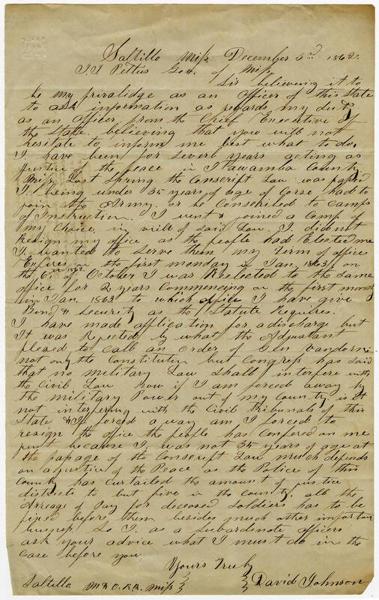 Saltillo Miss December 3rd 1862
J J Pettus Gov. of Miss
Sir believing it to
be my priviledge as an officer of this State
to ask information as regards my duty
as an officer from the Chief Executive of
the State believing that you will not
hesitate to inform me just what to do.
I have been for several years acting as
Justice of the peace in Itawamba County
Miss. last spring the Conscript Law was passed
I being under 35 years of age of corse had to
join the Army, or be Conscripted to camps
of Instruction. I went & joined a comp of
my Choice, in spite of said Law, I did not
Resign my office as the people had Elected me
I wanted to Serve them my term of office
Expires on the first monday in Jan 1863
the 6th of October I was Reelected to the same
office for 2 years Commencing on the first monday
in Jan 1863 to which office I have give
Bond & Security as the Statute Requires.
I have made application for a discharge but
It was Rejected by what the Adjutant
pleased to call an order of Gen Vandorn.
not only the Constitution but Congress has said
that no military Law shall interfere with
the Civil Law Now if I am forced away by
the military Power out of my county is it
not interfering with the Civil Tribunals of this
State if forced a way am I forced to
resign the office the people has confered on me
just because I was not 35 years of age at
the passage of the Conscript Law much depends
on a justice of the Peace as the Police of this
County has curtailed the amount of justice
districts to but five in the county, all the
Arreage of Pay for deceased Soldiers has to be
fixed before them besides much other important
business So I as a subordinate officer
ask your advice what I must do in the
case before you
Yours Truly
David Johnson
Saltillo M & O. R.R. Miss